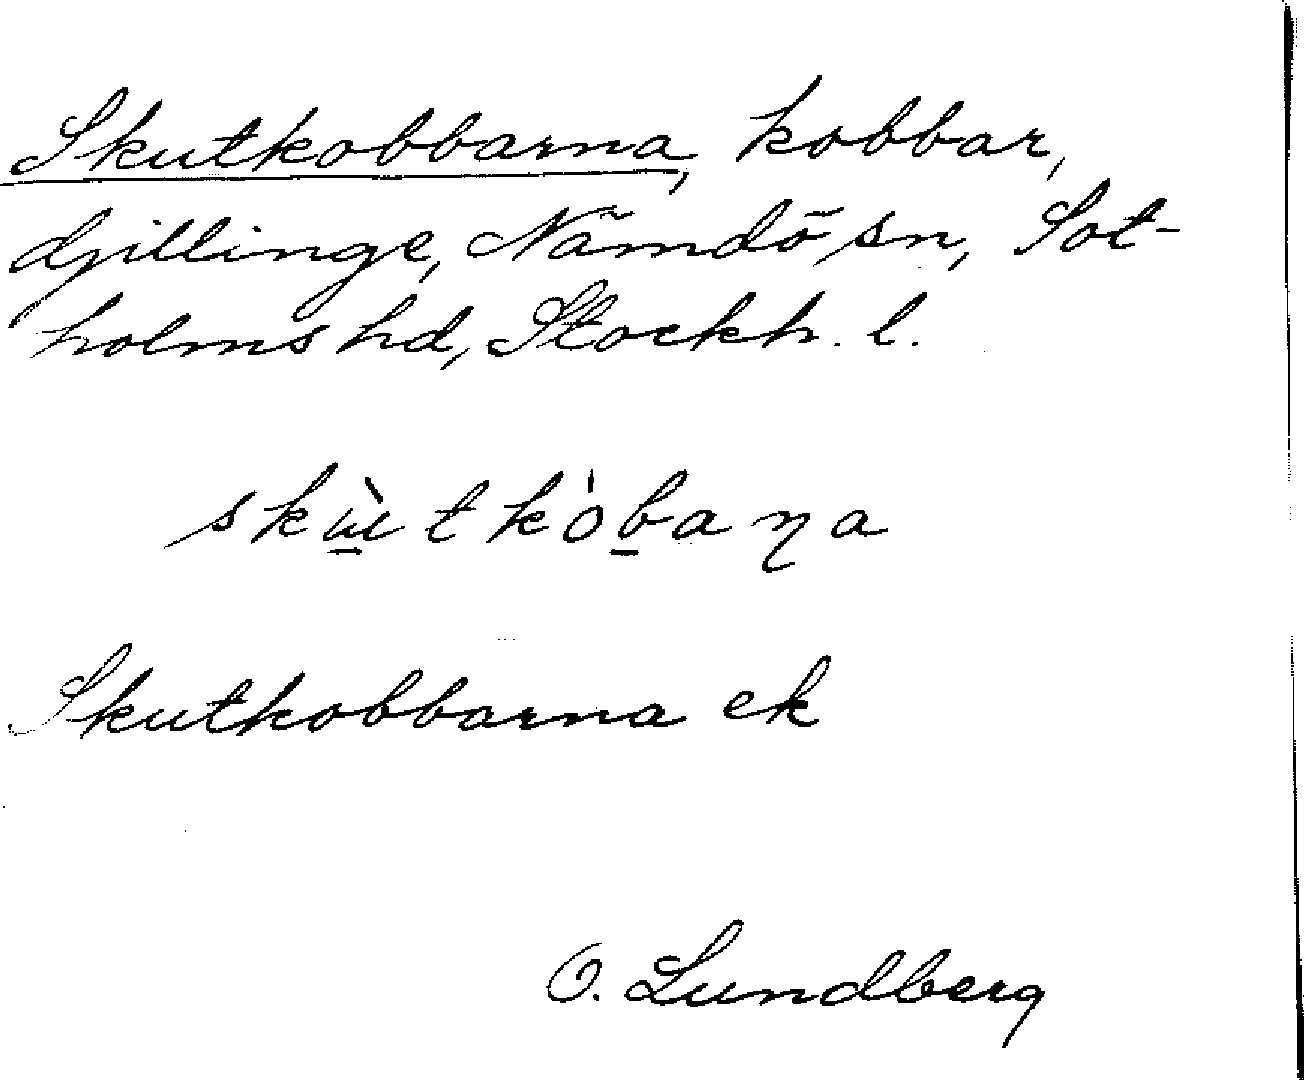 Skutkobbarna, kobbar,
djillinge, Nämdö sn, Sot-
holms hd, Stockh. l.
Skutkobbarna ek
O. Lundberg